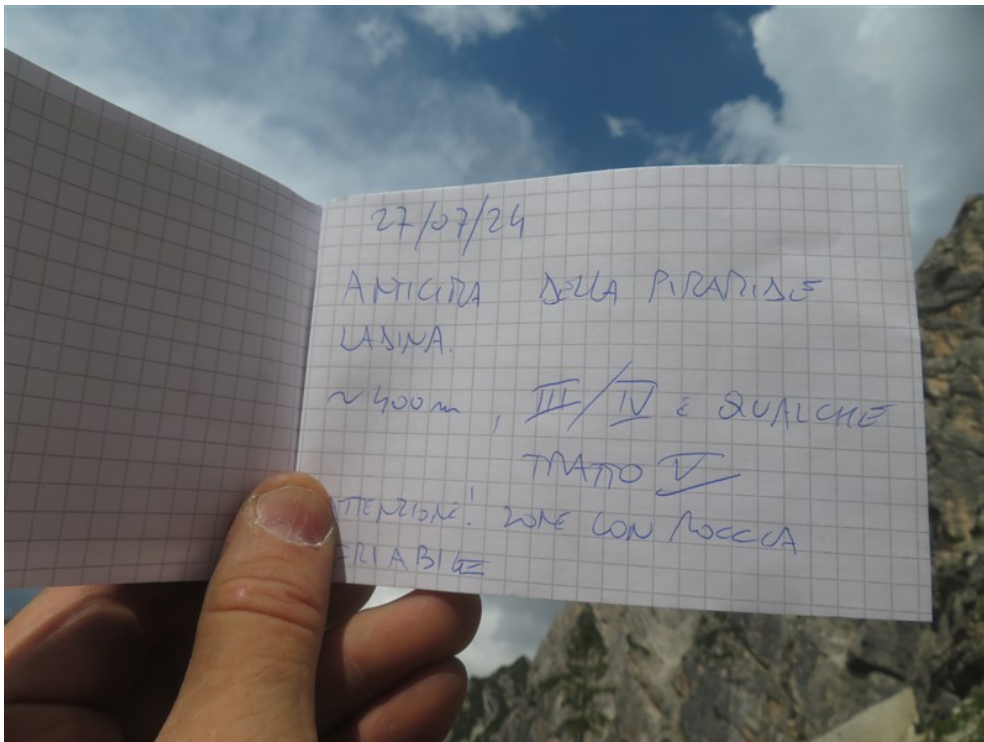 27/07/24
ANTICIMA DELLA PIRAMIDE
LADINA.
~400m, III/IV E QUALCHE
TRATTO V
ATTENZIONE! ZONE CON ROCCCA
FRIABILE